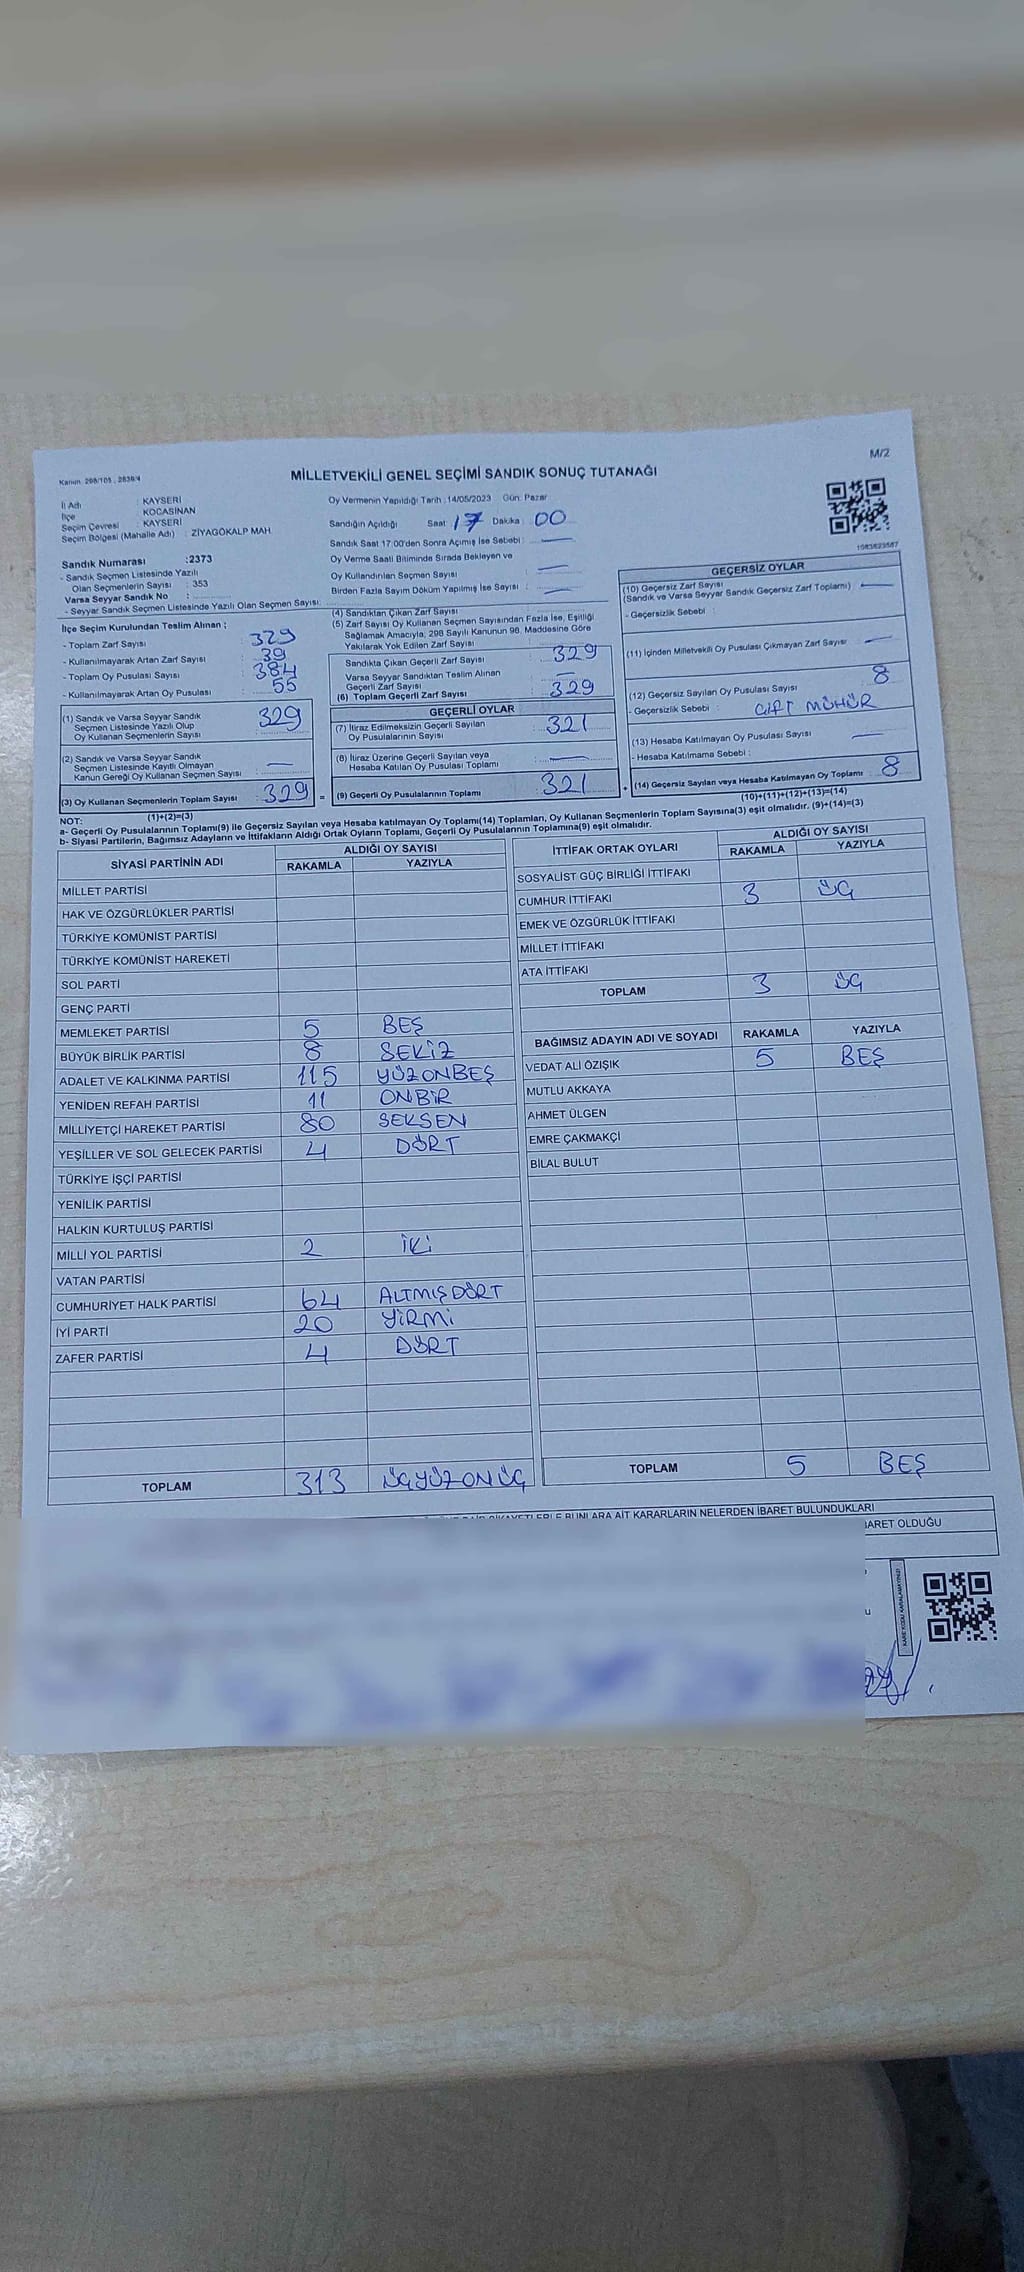 M/2
Kanun: 298/105 , 2839/4
MİLLETVEKİLİ GENEL SEÇİMİ SANDIK SONUÇ TUTANAĞI
İl Adı : KAYSERİ
İlçe : KOCASİNAN
Seçim Çevresi : KAYSERİ
Seçim Bölgesi (Mahalle Adı) : ZİYAGÖKALP MAH.
Sandık Numarası :2373
- Sandık Seçmen Listesinde Yazılı
Olan Seçmenlerin Sayısı : 353
Varsa Seyyar Sandık No :
- Seyyar Sandık Seçmen Listesinde Yazılı Olan Seçmen Sayısı:
Oy Vermenin Yapıldığı Tarih :14/05/2023 Gün: Pazar
Sandığın Açıldığı Saat: 17 Dakika : 00
Sandık Saat 17:00'den Sonra Açımış İse Sebebi : —
Oy Verme Saati Bitiminde Sırada Bekleyen ve
Oy Kullandırılan Seçmen Sayısı —
Birden Fazla Sayım Döküm Yapılmış İse Sayısı : —
1583623587
İlçe Seçim Kurulundan Teslim Alınan ;
- Toplam Zarf Sayısı : 329
- Kullanılmayarak Artan Zarf Sayısı : 39
- Toplam Oy Pusulası Sayısı : 384
- Kullanılmayarak Artan Oy Pusulası : 55
(1) Sandık ve Varsa Seyyar Sandık
Seçmen Listesinde Yazılı Olup
Oy Kullanan Seçmenlerin Sayısı : 329
(2) Sandık ve Varsa Seyyar Sandık
Seçmen Listesinde Kayıtlı Olmayan
Kanun Gereği Oy Kullanan Seçmen Sayısı : —
(3) Oy Kullanan Seçmenlerin Toplam Sayısı : 329 =
(1)+(2)=(3)
(4) Sandıktan Çıkan Zarf Sayısı :
(5) Zarf Sayısı Oy Kullanan Seçmen Sayısından Fazla İse, Eşitliği
Sağlamak Amacıyla, 298 Sayılı Kanunun 98. Maddesine Göre
Yakılarak Yok Edilen Zarf Sayısı
Sandıkta Çıkan Geçerli Zarf Sayısı : 329
Varsa Seyyar Sandıktan Teslim Alınan
Geçerli Zarf Sayısı : —
(6) Toplam Geçerli Zarf Sayısı : 329
GEÇERLİ OYLAR
(7) İtiraz Edilmeksizin Geçerli Sayılan
Oy Pusulalarının Sayısı : 321
(8) İtiraz Üzerine Geçerli Sayılan veya
Hesaba Katılan Oy Pusulası Toplamı : —
(9) Geçerli Oy Pusulalarının Toplamı : 321 +
GEÇERSİZ OYLAR
(10) Geçersiz Zarf Sayısı
(Sandık ve Varsa Seyyar Sandık Geçersiz Zarf Toplamı) —
- Geçersizlik Sebebi :
(11) İçinden Milletvekili Oy Pusulası Çıkmayan Zarf Sayısı —
(12) Geçersiz Sayılan Oy Pusulası Sayısı 8
- Geçersizlik Sebebi : ÇİFT MÜHÜR
(13) Hesaba Katılmayan Oy Pusulası Sayısı —
- Hesaba Katılmama Sebebi :
(14) Geçersiz Sayılan veya Hesaba Katılmayan Oy Toplamı : 8
(10)+(11)+(12)+(13)=(14)
NOT:
a- Geçerli Oy Pusulalarının Toplamı(9) ile Geçersiz Sayılan veya Hesaba Katılmayan Oy Toplamı(14) Toplamları, Oy Kullanan Seçmenlerin Toplam Sayısına(3) eşit olmalıdır. (9)+(14)=(3)
b- Siyasi Partilerin, Bağımsız Adayların ve İttifakların Aldığı Ortak Oyların Toplamı, Geçerli Oy Pusulalarının Toplamına(9) eşit olmalıdır.
SİYASİ PARTİNİN ADI ALDIĞI OY SAYISI
RAKAMLA YAZIYLA
MİLLET PARTİSİ
HAK VE ÖZGÜRLÜKLER PARTİSİ
TÜRKİYE KOMÜNİST PARTİSİ
TÜRKİYE KOMÜNİST HAREKETİ
SOL PARTİ
GENÇ PARTİ
MEMLEKET PARTİSİ 5 BEŞ
BÜYÜK BİRLİK PARTİSİ 8 SEKİZ
ADALET VE KALKINMA PARTİSİ 115 YÜZONBEŞ
YENİDEN REFAH PARTİSİ 11 ONBİR
MİLLİYETÇİ HAREKET PARTİSİ 80 SEKSEN
YEŞİLLER VE SOL GELECEK PARTİSİ 4 DÖRT
TÜRKİYE İŞÇİ PARTİSİ
YENİLİK PARTİSİ
HALKIN KURTULUŞ PARTİSİ
MİLLİ YOL PARTİSİ 2 İKİ
VATAN PARTİSİ
CUMHURİYET HALK PARTİSİ 64 ALTMIŞDÖRT
İYİ PARTİ 20 YİRMİ
ZAFER PARTİSİ 4 DÖRT
TOPLAM 313 ÜÇYÜZONÜÇ
İTTİFAK ORTAK OYLARI ALDIĞI OY SAYISI
RAKAMLA YAZIYLA
SOSYALİST GÜÇ BİRLİĞİ İTTİFAKI
CUMHUR İTTİFAKI 3 ÜÇ
EMEK VE ÖZGÜRLÜK İTTİFAKI
MİLLET İTTİFAKI
ATA İTTİFAKI
TOPLAM 3 ÜÇ
BAĞIMSIZ ADAYIN ADI VE SOYADI RAKAMLA YAZIYLA
VEDAT ALİ ÖZIŞIK 5 BEŞ
MUTLU AKKAYA
AHMET ÜLGEN
EMRE ÇAKMAKÇİ
BİLAL BULUT
TOPLAM 5 BEŞ
BUNLARA AİT KARARLARIN NELERDEN İBARET BULUNDUKLARI
OLDUĞU
KARE KODU KARALAMAYINIZ!